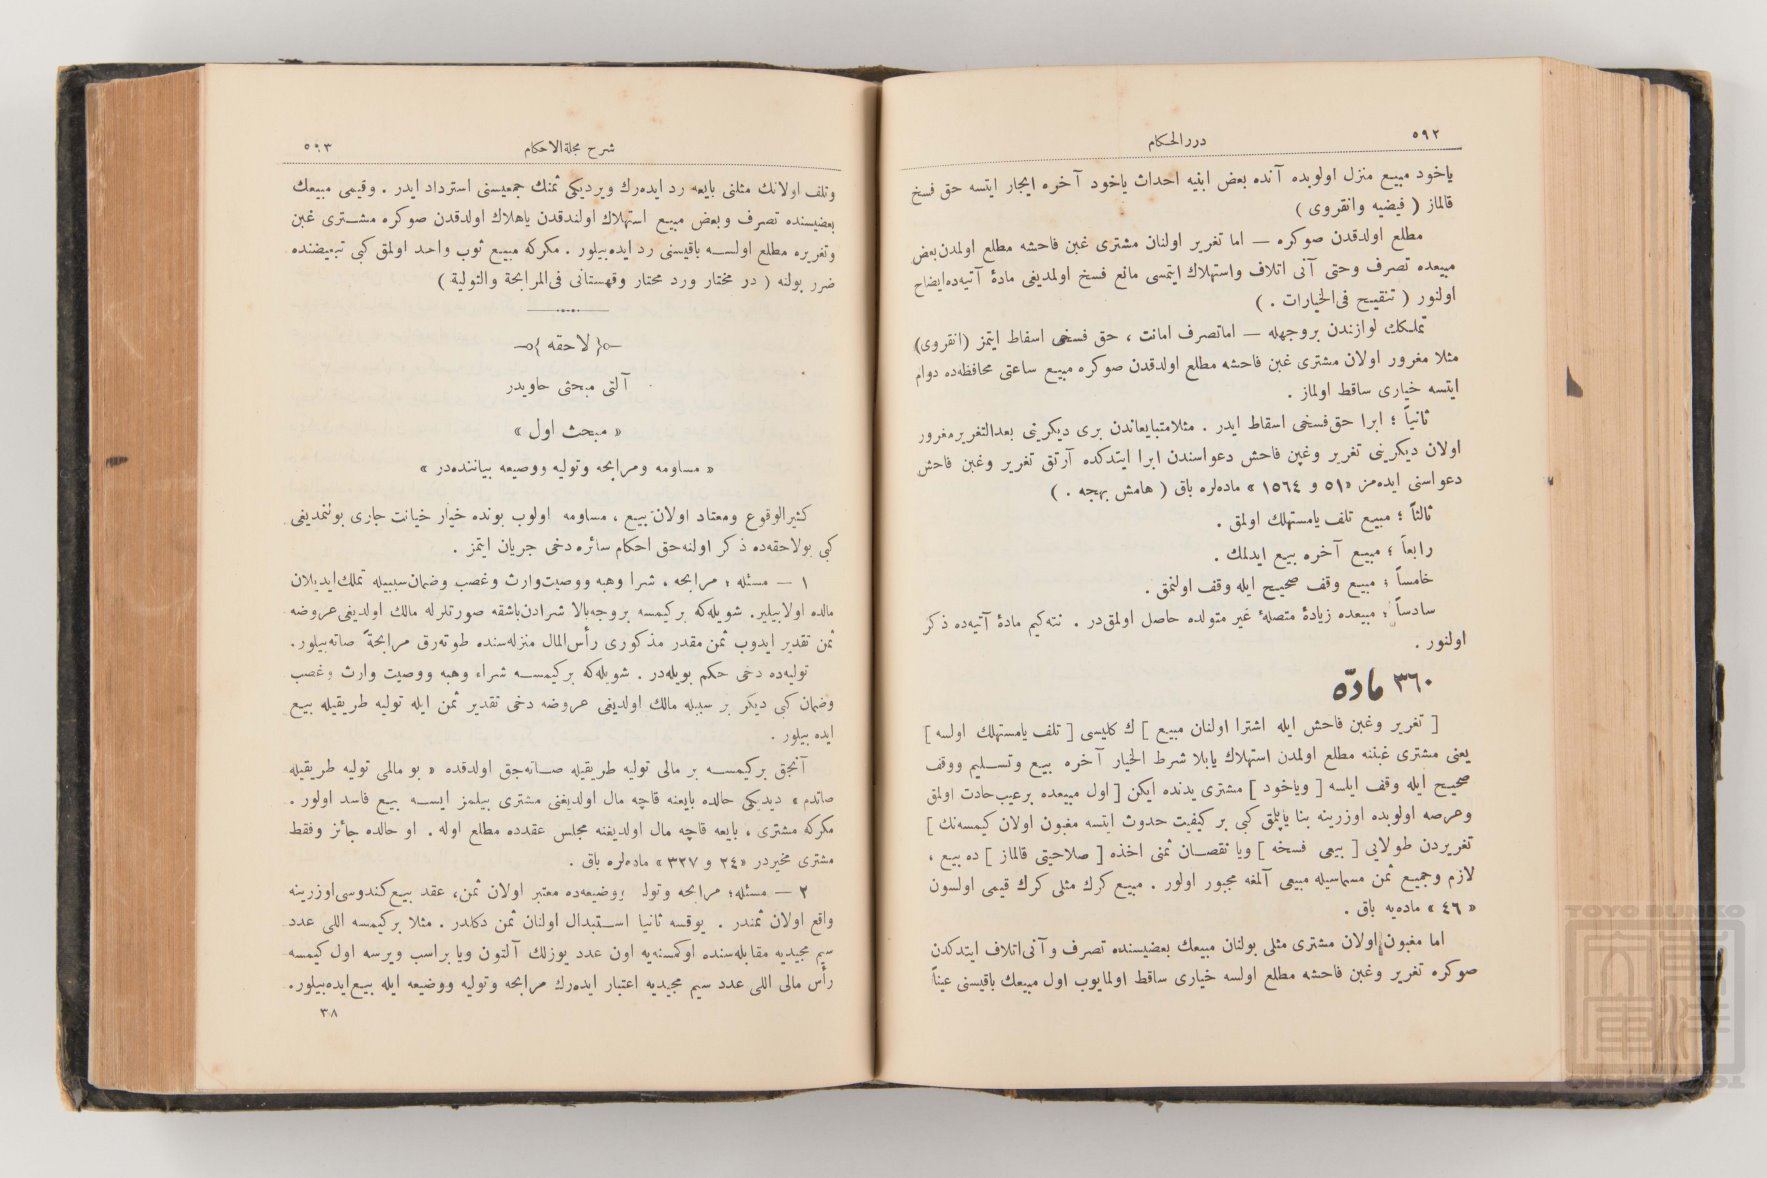 ٥٩٢
دررالحكام
ياخود مبيع منزل اولوبده آنده بعض ابنيه احداث ياخود آخره ايجار ايتسه حق فسخ
قالماز ( فيضيه وانقروى )
مطلع اولدقدن صوكره — اما تغرير اولنان مشترى غبن فاحشه مطلع اولمدن بعض
مبيعده تصرف وحتى آنى اتلاف واستهلاك ايتمسى مانع فسخ اولمديغى مادۀ آتيه‌ده ايضاح
اولنور ( تنقيح فى‌الخيارات . )
تملكك لوازندن بروجهله — اماتصرف امانت ، حق فسخى اسقاط ايتمز (انقروى)
مثلا مغرور اولان مشترى غبن فاحشه مطلع اولدقدن صوكره مبيع ساعتى محافظه‌ده دوام
ايتسه خيارى ساقط اولماز .
ثانياً ؛ ابرا حق‌فسخى اسقاط ايدر . مثلامتبايعاندن برى ديكرينى بعدالتغرير مغرور
اولان ديكرينى تغرير وغبن فاحش دعواسندن ابرا ايتدكده آرتق تغرير وغبن فاحش
دعواسنى ايده‌مز «٥١ و ١٥٦٤ » ماده‌لره باق ( هامش بهجه . )
ثالثاً ؛ مبيع تلف يامستهلك اولمق .
رابعاً ؛ مبيع آخره بيع ايدلمك .
خامساً ؛ مبيع وقف صحيح ايله وقف اولنمق .
سادساً ؛ مبيعده زيادۀ متصلۀ غير متولده حاصل اولمق‌در . نته‌كيم مادۀ آتيه‌ده ذكر
اولنور .
٣٦٠ مادّه
[ تغرير وغبن فاحش ايله اشترا اولنان مبيع ] ك كليسى [ تلف يامستهلك اولسه ]
يعنى مشترى غبننه مطلع اولمدن استهلاك يابلا شرط الخيار آخره بيع وتسليم ووقف
صحيح ايله وقف ايلسه [ وياخود ] مشترى يدنده ايكن [ اول مبيعده برعيب‌حادث اولمق
وعرصه اولوبده اوزرينه بنا ياپلمق كبى بر كيفيت حدوث ايتسه مغبون اولان كيمسه‌نك ]
تغريردن طولايى [ بيعى فسخه ] ويا نقصان ثمنى اخذه [ صلاحيتى قالماز ] ده بيع ،
لازم وجميع ثمن مسماسيله مبيعى آلمغه مجبور اولور . مبيع كرك مثلى كرك قيمى اولسون
« ٤٦ » ماده‌يه باق .
اما مغبون اولان مشترى مثلى بولنان مبيعك بعضيسنده تصرف و آنى‌اتلاف ايتدكدن
صوكره تغرير وغبن فاحشه مطلع اولسه خيارى ساقط اولمايوب اول مبيعك باقيسنى عيناً
شرح مجلةالاحكام
٥٩٣
وتلف اولانك مثلنى بايعه رد ايده‌رك ويرديكى ثمنك جمعيسنى استرداد ايدر . وقيمى مبيعك
بعضيسنده تصرف وبعض مبيع استهلاك اولندقدن ياهلاك اولدقدن صوكره مشترى غبن
وتغريره مطلع اولسه باقيسنى رد ايده‌بيلور . مكركه مبيع ثوب واحد اولمق كبى تبعيضنده
ضرر بولنه ( در مختار ورد محتار وقهستانى فى‌المرابحة والتولية )
{ لاحقه }
آلتى مبحثى حاويدر
« مبحث اول »
« مساومه ومرابحه وتوليه ووضيعه بياننده‌در »
كثيرالوقوع ومعتاد اولان بيع ، مساومه اولوب بونده خيار خيانت جارى بولنمديغى
كبى بولاحقه‌ده ذكر اولنه‌جق احكام سائره دخى جريان ايتمز .
١ — مسئله ؛ مرابحه ، شرا وهبه ووصيت‌وارث وغصب وضمان سببيله تملك‌ايديلان
مالده اولابيلير. شويله‌كه بركيمسه بروجه‌بالا شرادن‌باشقه صورتلرله مالك اولديغى‌عروضه
ثمن تقدير ايدوب ثمن مقدر مذكورى رأس‌المال منزله‌سنده طوته‌رق مرابحةً صاته‌بيلور.
توليه‌ده دخى حكم بويله‌در . شويله‌كه بركيمسه شراء وهبه ووصيت وارث وغصب
وضمان كبى ديكر بر سببله مالك اولديغى عروضه دخى تقدير ثمن ايله توليه طريقيله بيع
ايده بيلور .
آنجق بركيمسه بر مالى توليه طريقيله صاته‌جق اولدقده « بو مالى توليه طريقيله
صاتدم » ديديكى حالده بايعنه قاچه مال اولديغنى مشترى بيلمز ايسه بيع فاسد اولور .
مكركه مشترى ، بايعه قاچه مال اولديغنه مجلس عقدده مطلع اوله . او حالده جائز وفقط
مشترى مخيردر «٢٤ و ٣٢٧» ماده‌لره باق .
٢ — مسئله؛ مرابحه وتوليه ووضيعه‌ده معتبر اولان ثمن، عقد بيع كندوسى‌اوزرينه
واقع اولان ثمندر . يوقسه ثانيا استبدال اولنان ثمن دكلدر . مثلا بركيمسه اللى عدد
سيم مجيديه مقابله‌سنده اوكمسنه‌يه اون عدد يوزلك آلتون ويا براسب ويرسه اول كيمسه
رأس مالى اللى عدد سيم مجيديه اعتبار ايده‌رك مرابحه وتوليه ووضيعه ايله بيع‌ايده‌بيلور.
٣٨
TOYO BUNKO